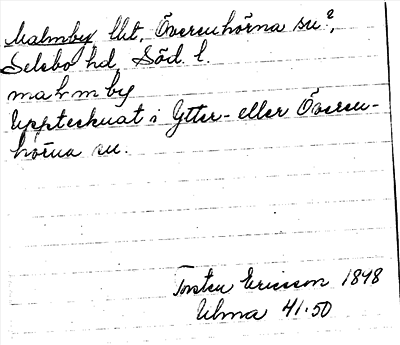 Malmby Ikt. Överenhörna sn?,
Selebo hd, Söd. l.
malmby
Upptecknat i Ytter- eller Överen-
hörna sn.
Torsten Ericsson 1898
Ulma 41.50